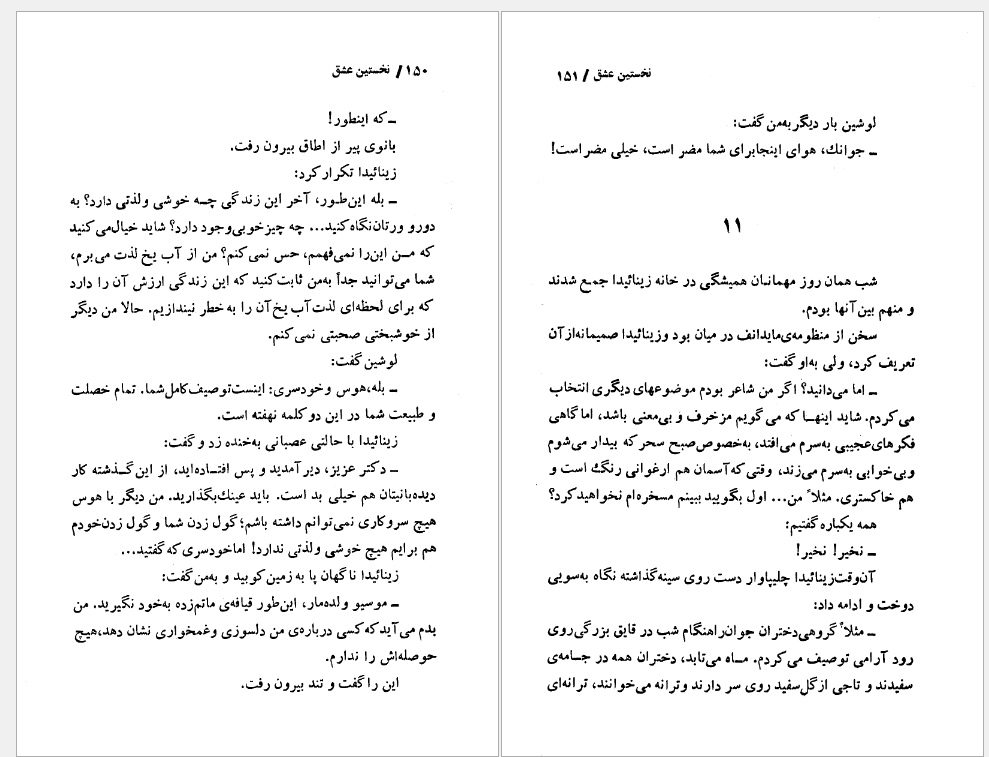 ۱۵۰ / نخستین عشق
ـ که اینطور!
بانوی پیر از اطاق بیرون رفت.
زینائیدا تکرار کرد:
ـ بله این‌طور، آخر این زندگی چه خوشی ولذتی دارد؟ به
دورو ورتان نگاه کنید... چه چیز خوبی وجود دارد؟ شاید خیال می‌کنید
که من این‌را نمی‌فهمم، حس نمی‌کنم؟ من از آب یخ لذت می‌برم،
شما می‌توانید جداً به‌من ثابت کنید که این زندگی ارزش آن را دارد
که برای لحظه‌ای لذت آب یخ آن را به خطر نیندازیم. حالا من دیگر
از خوشبختی صحبتی نمی‌کنم.
لوشین گفت:
ـ بله، هوس وخودسری: اینست توصیف کامل شما. تمام خصلت
و طبیعت شما در این دو کلمه نهفته است.
زینائیدا با حالتی عصبانی به‌خنده زد و گفت:
ـ دکتر عزیز، دیر آمدید و پس افتاده‌اید، از این گذشته کار
دیده‌بانیتان هم خیلی بد است. باید عینك بگذارید. من دیگر با هوس
هیچ سروکاری نمی‌توانم داشته باشم؛ گول زدن شما و گول زدن خودم
هم برایم هیچ خوشی ولذتی ندارد! اما خودسری که گفتید...
زینائیدا ناگهان پا به زمین کوبید و به‌من گفت:
ـ موسیو ولده‌مار، این‌طور قیافه‌ی ماتم‌زده به‌خود نگیرید. من
بدم می‌آید که کسی درباره‌ی من دلسوزی وغمخواری نشان دهد، هیچ
حوصله‌اش را ندارم.
این را گفت و تند بیرون رفت.
نخستین عشق / ۱۵۱
لوشین بار دیگر به‌من گفت:
ـ جوانك، هوای اینجا برای شما مضر است، خیلی مضر است!
۱۱
شب همان روز مهمانان همیشگی در خانه زینائیدا جمع شدند
و منهم بین آنها بودم.
سخن از منظومه‌ی مایدانف در میان بود وزینائیدا صمیمانه از آن
تعریف کرد، ولی به‌او گفت:
ـ اما می‌دانید؟ اگر من شاعر بودم موضوعهای دیگری انتخاب
می‌کردم. شاید اینها که می‌گویم مزخرف و بی‌معنی باشد، اما گاهی
فکرهای عجیبی به‌سرم می‌افتد، به‌خصوص صبح سحر که بیدار می‌شوم
وبی‌خوابی به‌سرم می‌زند، وقتی که آسمان هم ارغوانی رنگ است و
هم خاکستری. مثلاً من... اول بگویید ببینم مسخره‌ام نخواهید کرد؟
همه یکباره گفتیم:
ـ نخیر! نخیر!
آن‌وقت زینائیدا چلیپاوار دست روی سینه گذاشته نگاه به‌سویی
دوخت و ادامه داد:
ـ مثلاً گروهی دختران جوان را هنگام شب در قایق بزرگی روی
رود آرامی توصیف می‌کردم. ماه می‌تابد، دختران همه در جامه‌ی
سفیدند و تاجی از گل سفید روی سر دارند وترانه می‌خوانند، ترانه‌ای